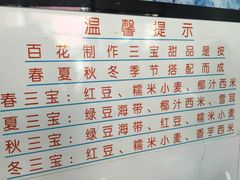 温馨提示
百花制作三宝甜品是按
春夏秋冬季节搭配而成
春三宝:红豆、糯米小麦、椰汁西米
夏三宝:绿豆海带、椰汁西米、雪耳
秋三宝:绿豆海带、红豆、糯米小麦
冬三宝:红豆、糯米小麦、香芋西米